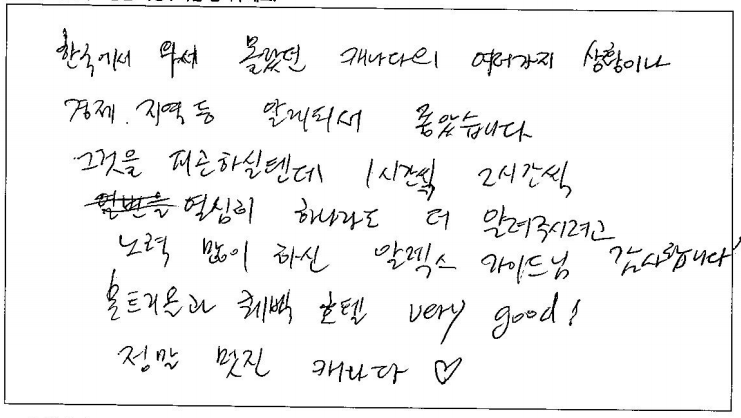 한국에서 와서 몰랐던 캐나다의 여러가지 상황이나
경제.지역등 알게되서 좋았습니다
그것을 피곤하실텐데 1시간씩 2시간씩
열심히 하나라도 더 알려주시려고
노력 많이 하신 알렉스 가이드님 감사합니다!
몬트리온과 퀘백 호텔 very good!
정말 멋진 캐나다 ♡